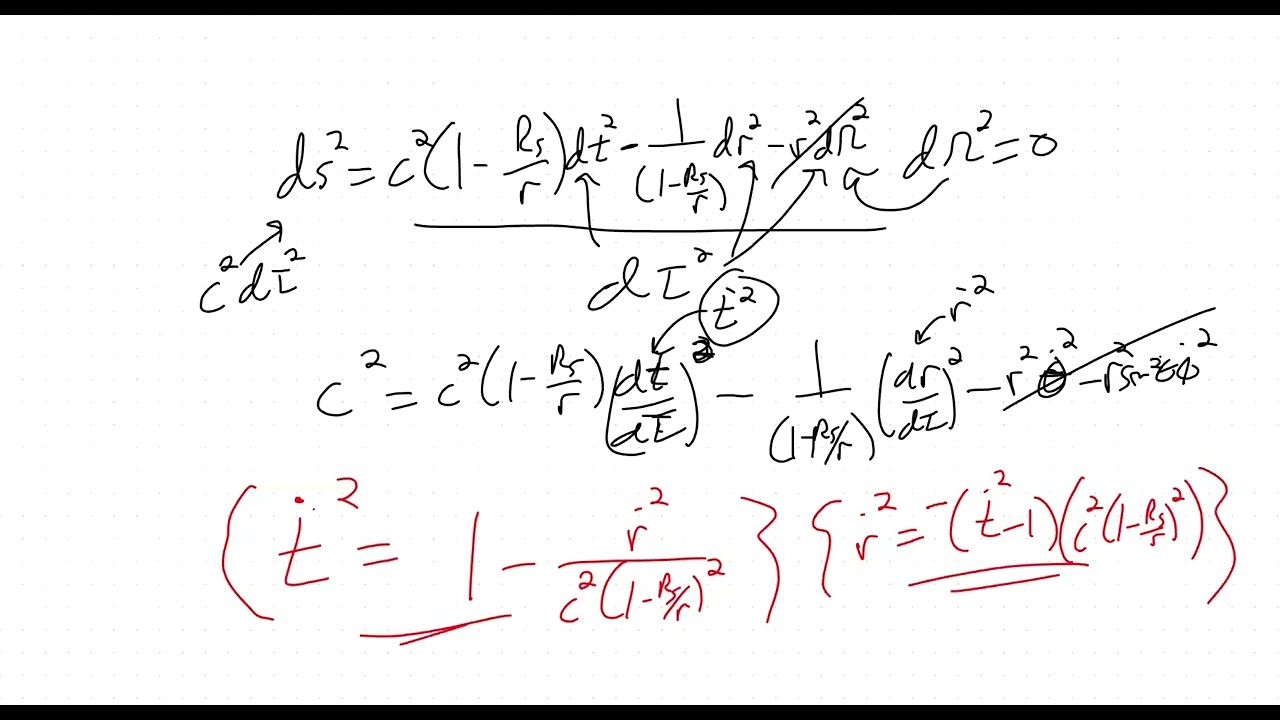 ds² = c²(1 - Rs/r)dt² - 1/(1-Rs/r) dr² - r²dΩ² dΩ² = 0
c²dτ² dτ²
ṫ² ṙ²
c² = c²(1-Rs/r)(dt/dτ)² - 1/(1-Rs/r) (dr/dτ)² - r²θ̇² - r²sin²θφ̇²
(ṫ² = 1 - ṙ²/c²(1-Rs/r)²} {ṙ² = -(ṫ²-1)(c²(1-Rs/r)²)}